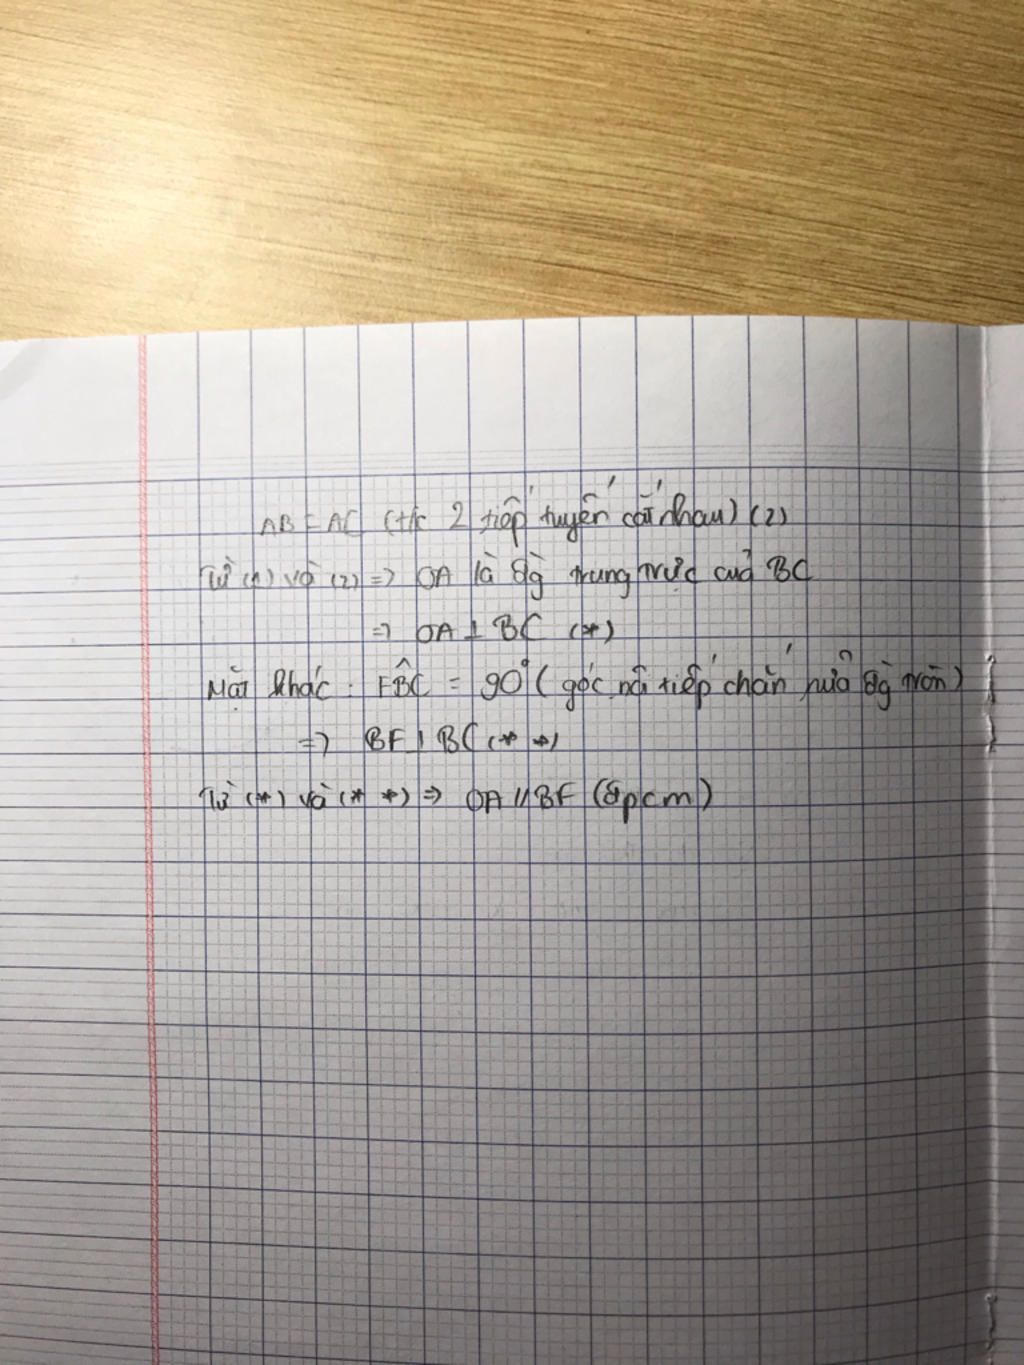 AB = AC (t/c 2 tiếp tuyến cắt nhau) (2)
Từ (1) và (2) => OA là đg trung trực của BC
=> OA ⊥ BC (*)
Mặt khác : FB̂C = 90° ( góc nội tiếp chắn nửa đg tròn )
=> BF ⊥ BC (* *)
Từ (*) và (* *) => OA // BF (đpcm)